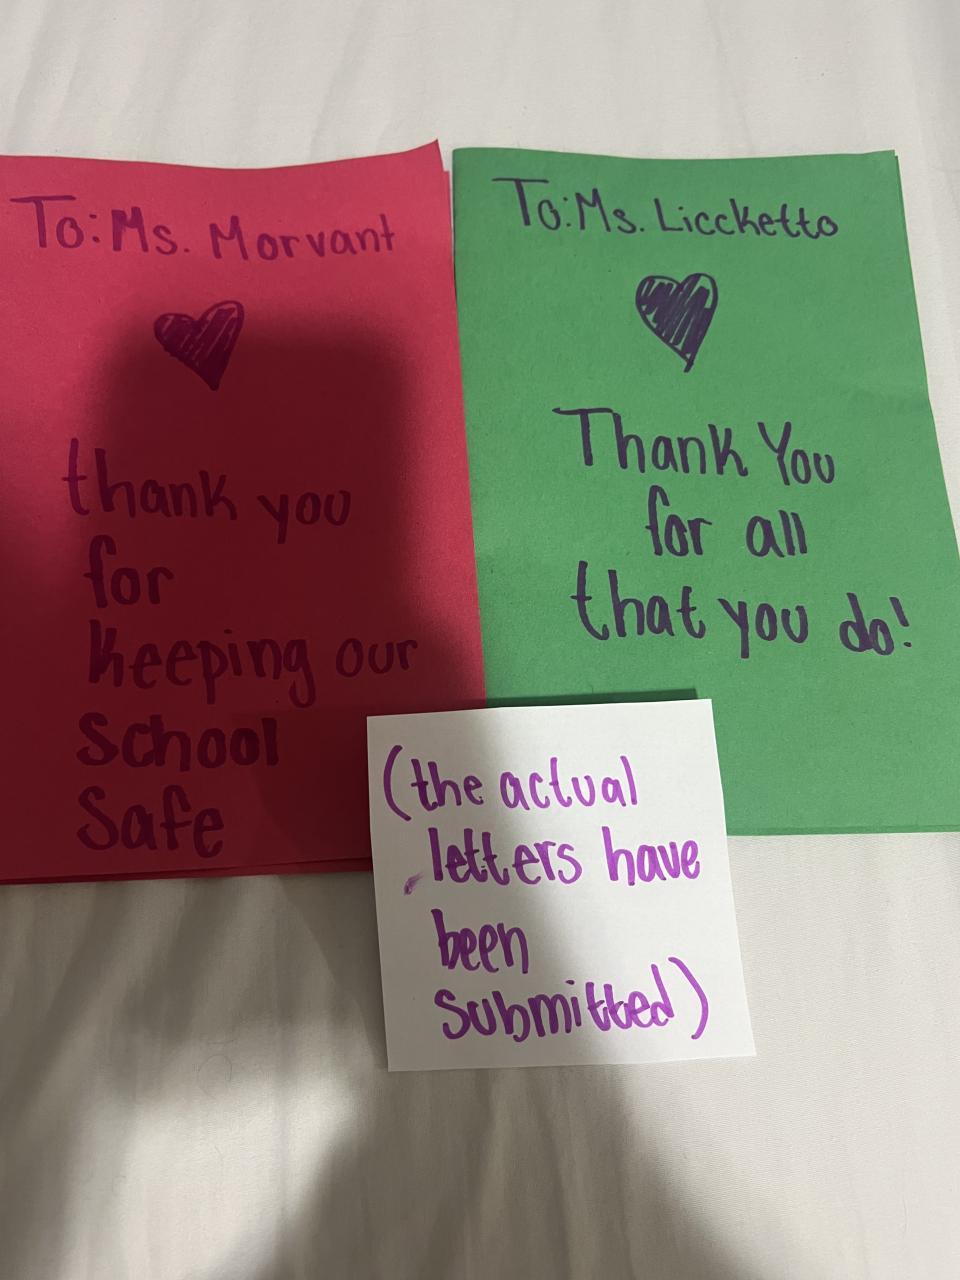 To: Ms. Morvant
thank you
for
keeping our
School
Safe
To: Ms. Liccketto
Thank You
for all
that you do!
(the actual
letters have
been
submitted)